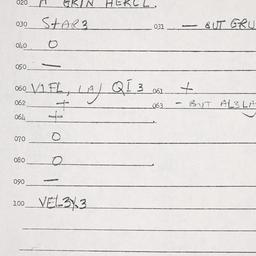 020 A GRIN HERCL.
030 StAR3 031 — BUT GRU
040 O
050 —
060 VIFL, (A) QI3 061 +
062 + 063 - BUT AL3LA
064 +
070 O
080 O
090 —
100 VEL3X3